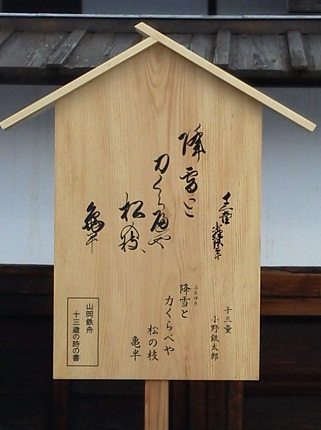 十三童
小野鉄太郎
降雪と
力くらべや
松の枝
亀平
十三童
小野鉄太郎
降雪と
ふるゆき
力くらべや
松の枝
亀平
山岡鉄舟
十三歳の時の書